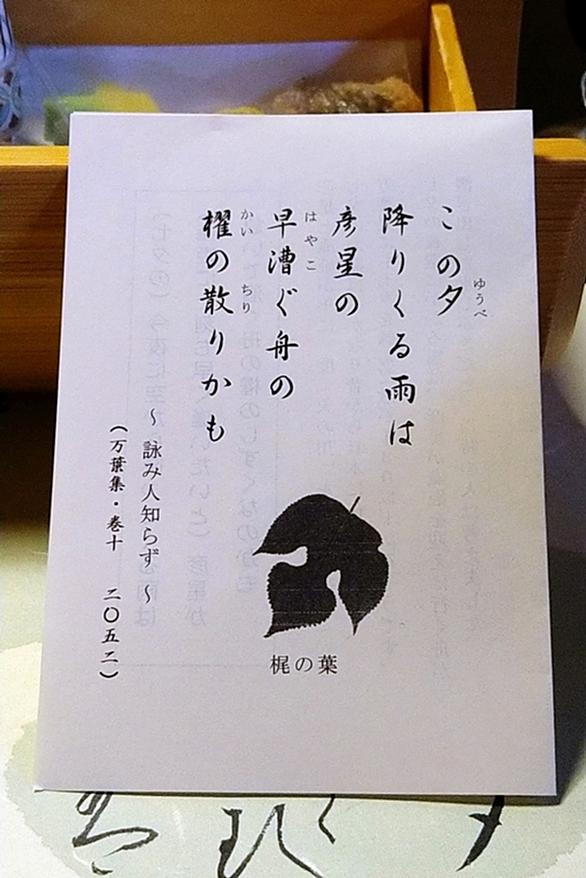 この夕
ゆうべ
降りくる雨は
彦星の
早漕ぐ舟の
はやこ
櫂の散りかも
かい ちり
~ 詠み人知らず ~
(万葉集・巻十 二〇五二)
梶の葉